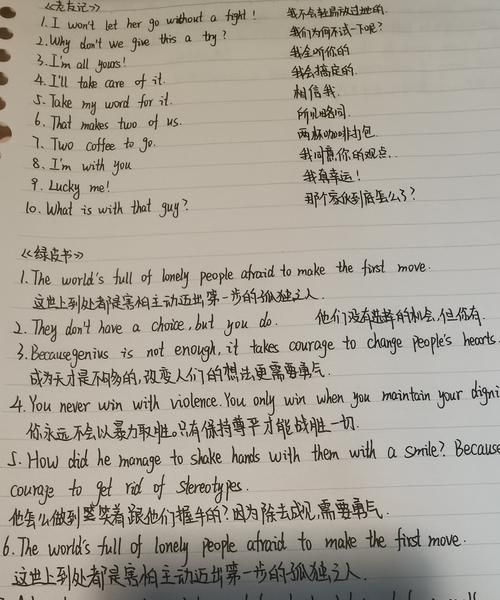 《老友记》
1. I won't let her go without a fight! 我不会轻易放过她的.
2. Why don't we give this a try? 我们为何不试一下呢?
3. I'm all yours! 我全听你的
4. I'll take care of it. 我会搞定的.
5. Take my word for it. 相信我.
6. That makes two of us. 所见略同.
7. Two coffee to go. 两杯咖啡打包.
8. I'm with you 我同意你的观点.
9. Lucky me! 我真幸运!
10. What is with that guy? 那个家伙到底怎么了?
《绿皮书》
1. The world's full of lonely people afraid to make the first move.
这世上到处都是害怕主动迈出第一步的孤独之人.
2. They don't have a choice, but you do. 他们没有选择的机会,但你有.
3. Because genius is not enough, it takes courage to change people's hearts.
成为天才是不够的,改变人们的想法更需要勇气.
4. You never win with violence. You only win when you maintain your digni
你永远不会以暴力取胜。只有保持尊严才能战胜一切.
5. How did he manage to shake hands with them with a smile? Because
courage to get rid of stereotypes.
他怎么做到笑着跟他们握手的?因为除去成见,需要勇气.
6. The world's full of lonely people afraid to make the first move.
这世上到处都是害怕主动迈出第一步的孤独之人.